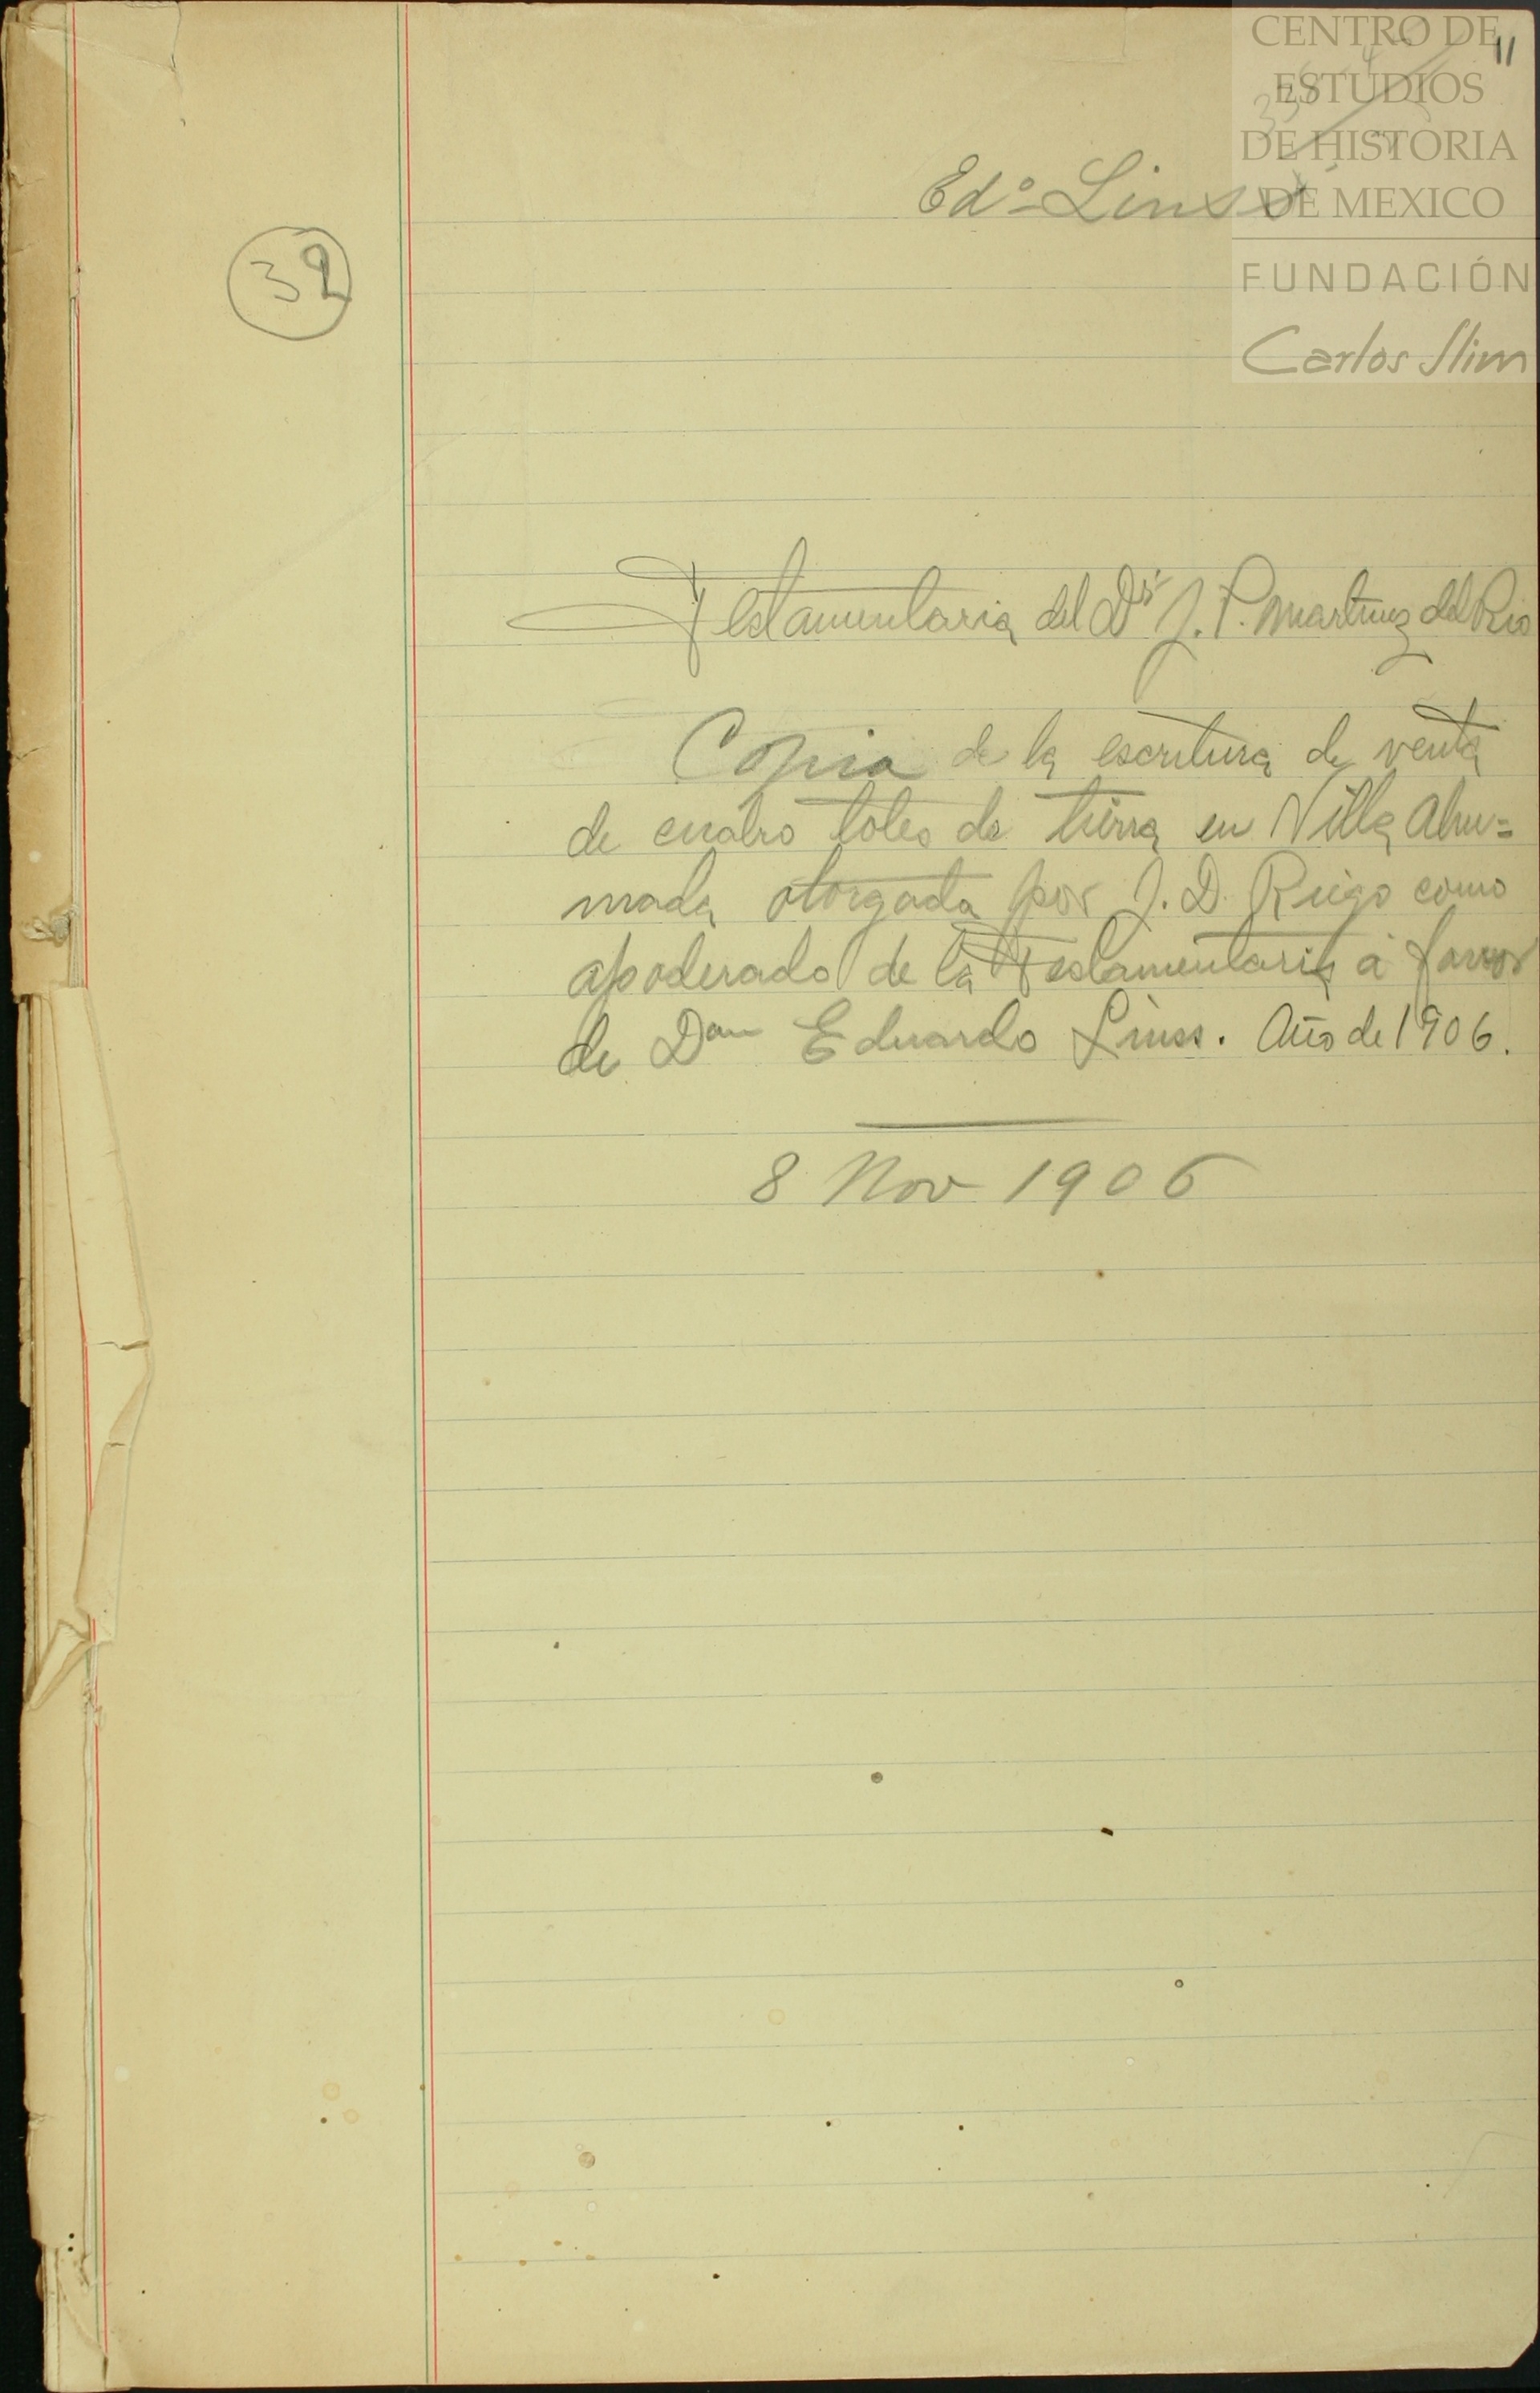 11
CENTRO DE
ESTUDIOS
DE HISTORIA
DE MEXICO
FUNDACIÓN
Carlos Slim
Edº Linss
32
Testamentaria del Dr J. P. Martinez del Rio
Copia de la escritura de venta
de cuatro lotes de tierra en Villa Ahu=
mada otorgada por J. D. Riigo como
apoderado de la Testamentaria á favor
de Don Eduardo Linss. Año de 1906.
8 Nov 1906